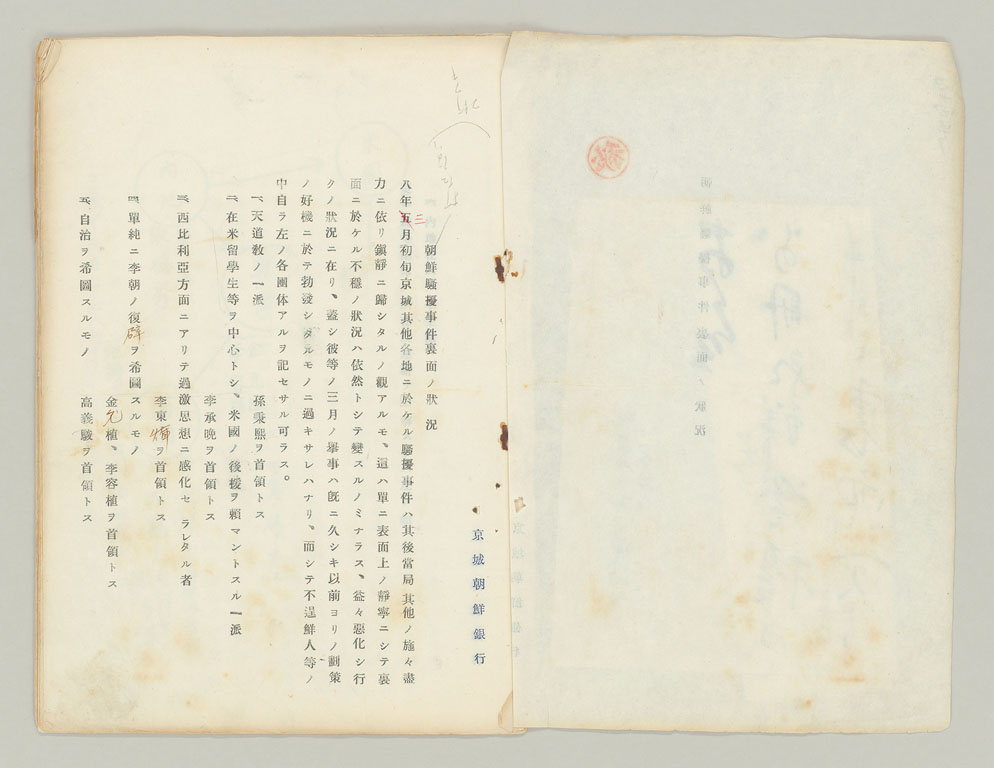 京城朝鮮銀行
朝鮮騷擾事件裏面ノ狀況
八年三月初旬京城其他各地ニ於ケル騷擾事件ハ其後當局其他ノ施々盡
力ニ依リ鎭靜ニ歸シタルノ觀アルモ、這ハ單ニ表面上ノ靜寧ニシテ裏
面ニ於ケル不穩ノ狀況ハ依然トシテ變スルノミナラス、益々惡化シ行
クノ狀況ニ在リ、蓋シ彼等ノ三月ノ擧事ハ旣ニ久シキ以前ヨリノ劃策
ノ好機ニ於テ勃發シタルモノニ過キサレハナリ、而シテ不逞鮮人等ノ
中自ラ左ノ各團体アルヲ記セサル可ラス。
一、天道敎ノ一派
孫秉熙ヲ首領トス
二、在米留學生等ヲ中心トシ、米國ノ後援ヲ賴マントスル一派
李承晩ヲ首領トス
三、西比利亞方面ニアリテ過激思想ニ感化セラレタル者
李東輝ヲ首領トス
四、單純ニ李朝ノ復辟ヲ希圖スルモノ
金允植、李容植ヲ首領トス
五、自治ヲ希圖スルモノ
高義駿ヲ首領トス